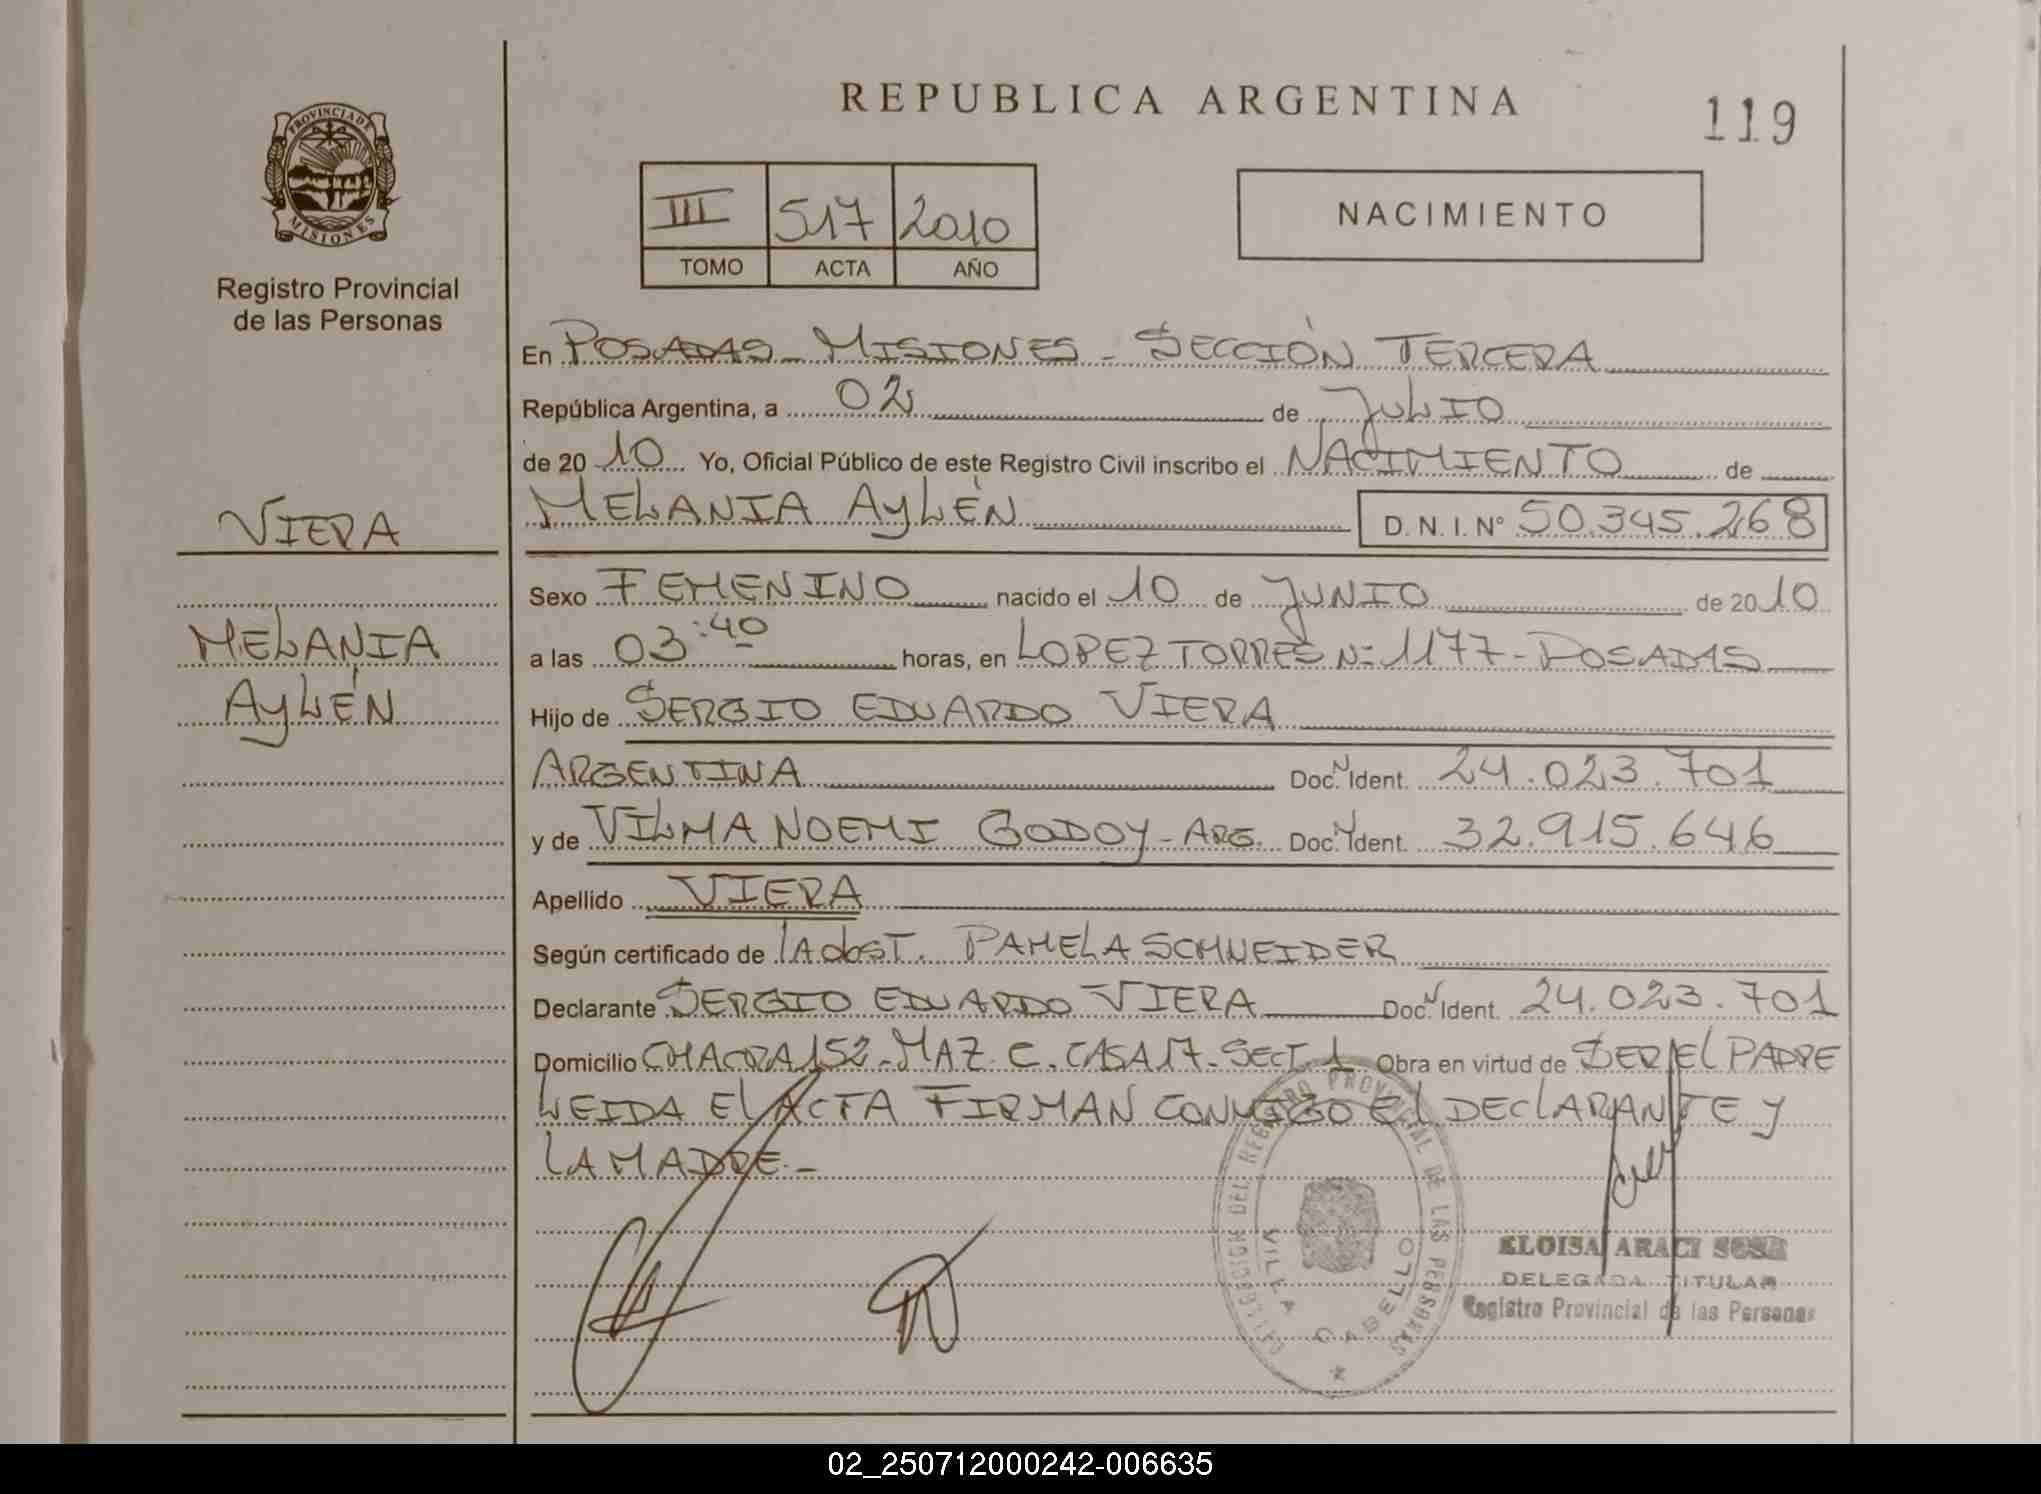 REPUBLICA ARGENTINA
119
PROVINCIA DE MISIONES
Registro Provincial
de las Personas
III 517 2010
TOMO ACTA AÑO
NACIMIENTO
En POSADAS - MISIONES - SECCIÓN TERCERA
República Argentina, a 02 de JULIO
de 2010 Yo, Oficial Público de este Registro Civil inscribo el NACIMIENTO de
MELANIA AYLÉN D.N.I. Nº 50.345.268
VIERA
MELANIA
AYLÉN
Sexo FEMENINO nacido el 10 de JUNIO de 2010
a las 03:40 horas, en LOPEZ TORRES Nº 1177 - POSADAS
Hijo de SERGIO EDUARDO VIERA
ARGENTINA Doc. Ident. 24.023.701
y de VILMA NOEMI GODOY - ARG. Doc. Ident. 32.915.646
Apellido VIERA
Según certificado de LA OBST. PAMELA SCHNEIDER
Declarante SERGIO EDUARDO VIERA Doc. Ident. 24.023.701
Domicilio CHACRA 152 - MAZ. C. CASA 17 - SECT. 1 Obra en virtud de SER EL PADRE
LEIDA EL ACTA FIRMAN CONMIGO EL DECLARANTE Y
LA MADRE.-
DIRECCION DEL REGISTRO PROVINCIAL DE LAS PERSONAS
VILLA CABELLO
ELOISA ARACI SOSA
DELEGADA TITULAR
Registro Provincial de las Personas
02_250712000242-006635